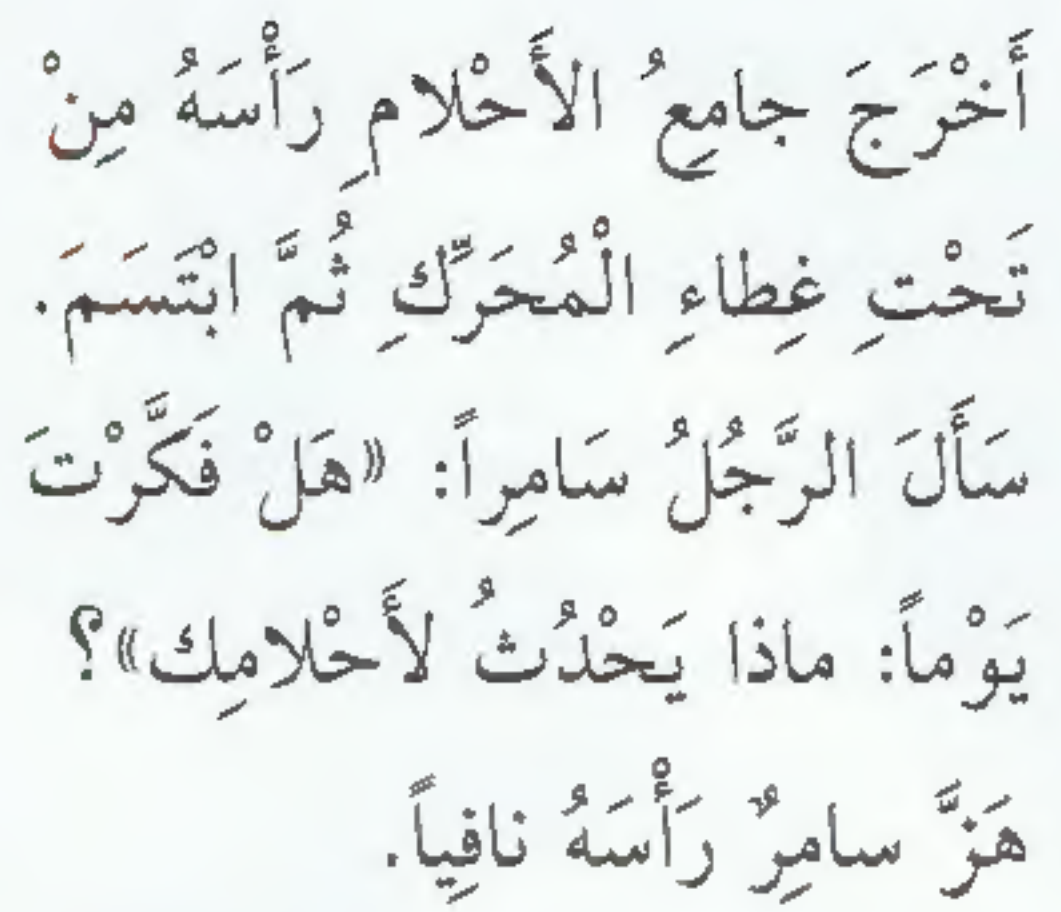 أَخْرَجَ جامِعُ الأَحْلامِ رَأْسَهُ مِنْ
تَحْتِ غِطاءِ الْمُحَرِّكِ ثُمَّ ابْتَسَمَ.
سَأَلَ الرَّجُلُ سَامِراً: «هَلْ فَكَّرْتَ
يَوْماً: ماذا يَحْدُثُ لأَحْلامِك»؟
هَزَّ سامِرٌ رَأْسَهُ نافِياً.